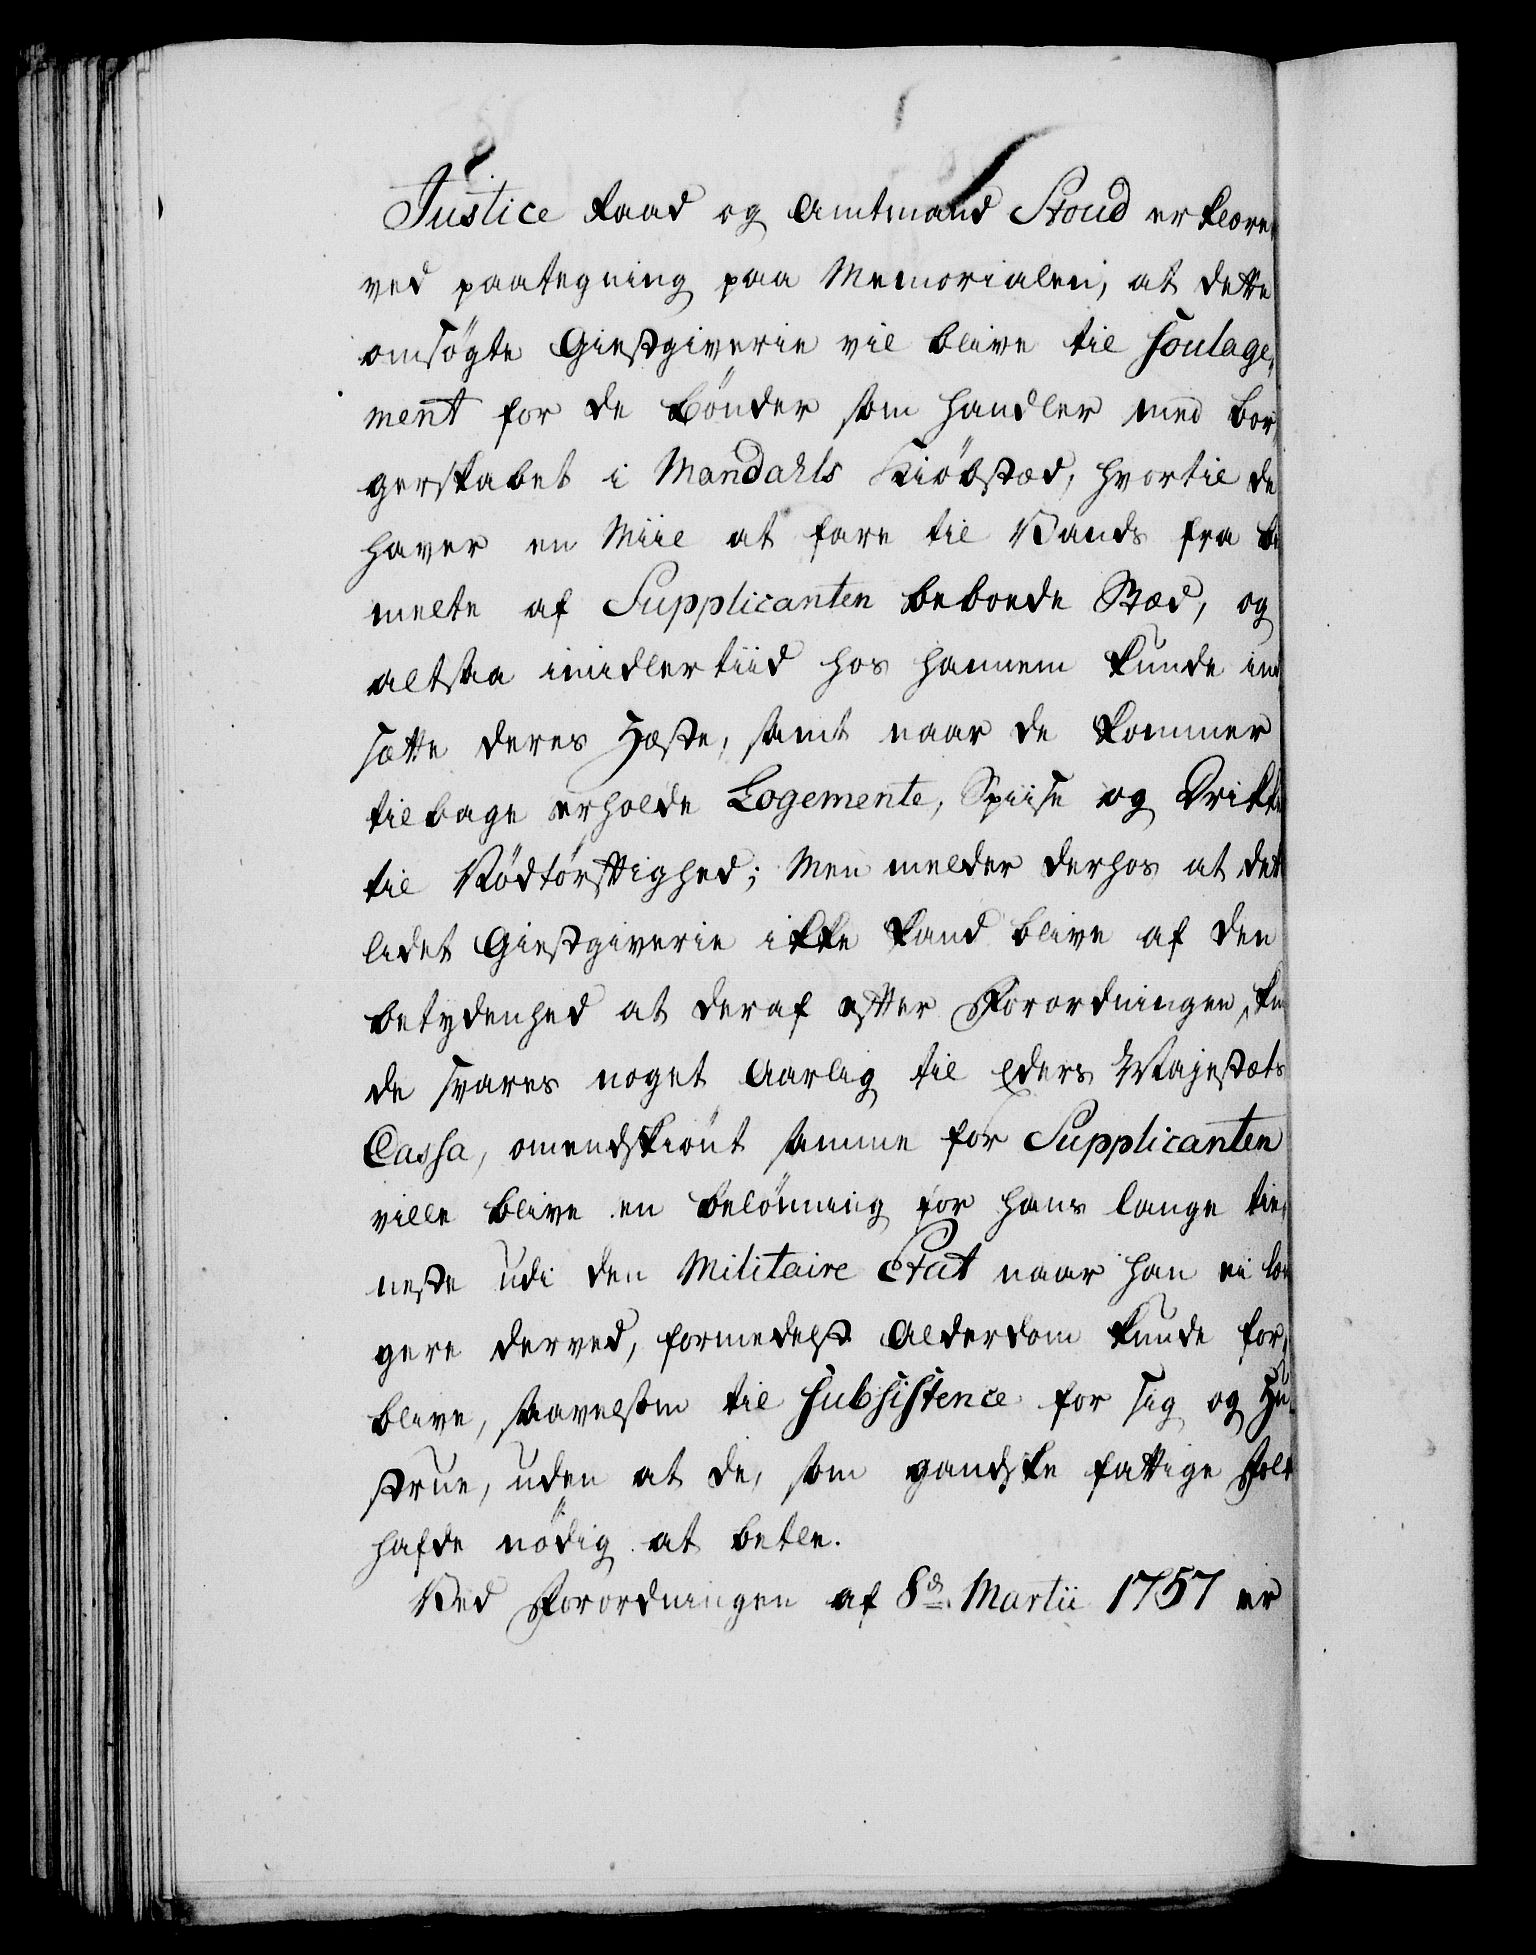 Justice Raad og Amtmand Stoud erklærer
ved paategning paa Memorialen, at dette
omsögte Giestgiverie vil blive til Soulage,
ment for de Bönder som handler med bor,
gerskabet i Mandahls Kiöbstæd, hvortil de
haver en Miil at fare til Vands fra be
melte af Supplicanten beboede Stæd, og
altsaa imidlertiid hos hannem kunde ind
sætte deres Hæste, samt naar de kommer
tilbage erholde Logemente, Spiise og Drikke
til Nödtörfftighed; Men melder derhos at det
lidet Giestgiverie ikke kand blive af den
betydenhed at deraf effter Forordningen, kun
de svares noget Aarlig til Eders Majestæts
Cassa, omendskiönt samme for Supplicanten
ville blive en belönning for hans lange tie,
neste udi den Militaire Etat naar han ei læn
gere derved, formedelst Alderdom kunde for,
blive, saavelsom til Subsistence for sig og Hu,
strue, uden at de, som gandske fattige Folk
hafde nödig at betle.
Ved Forordningen af 8de Martii 1757 er